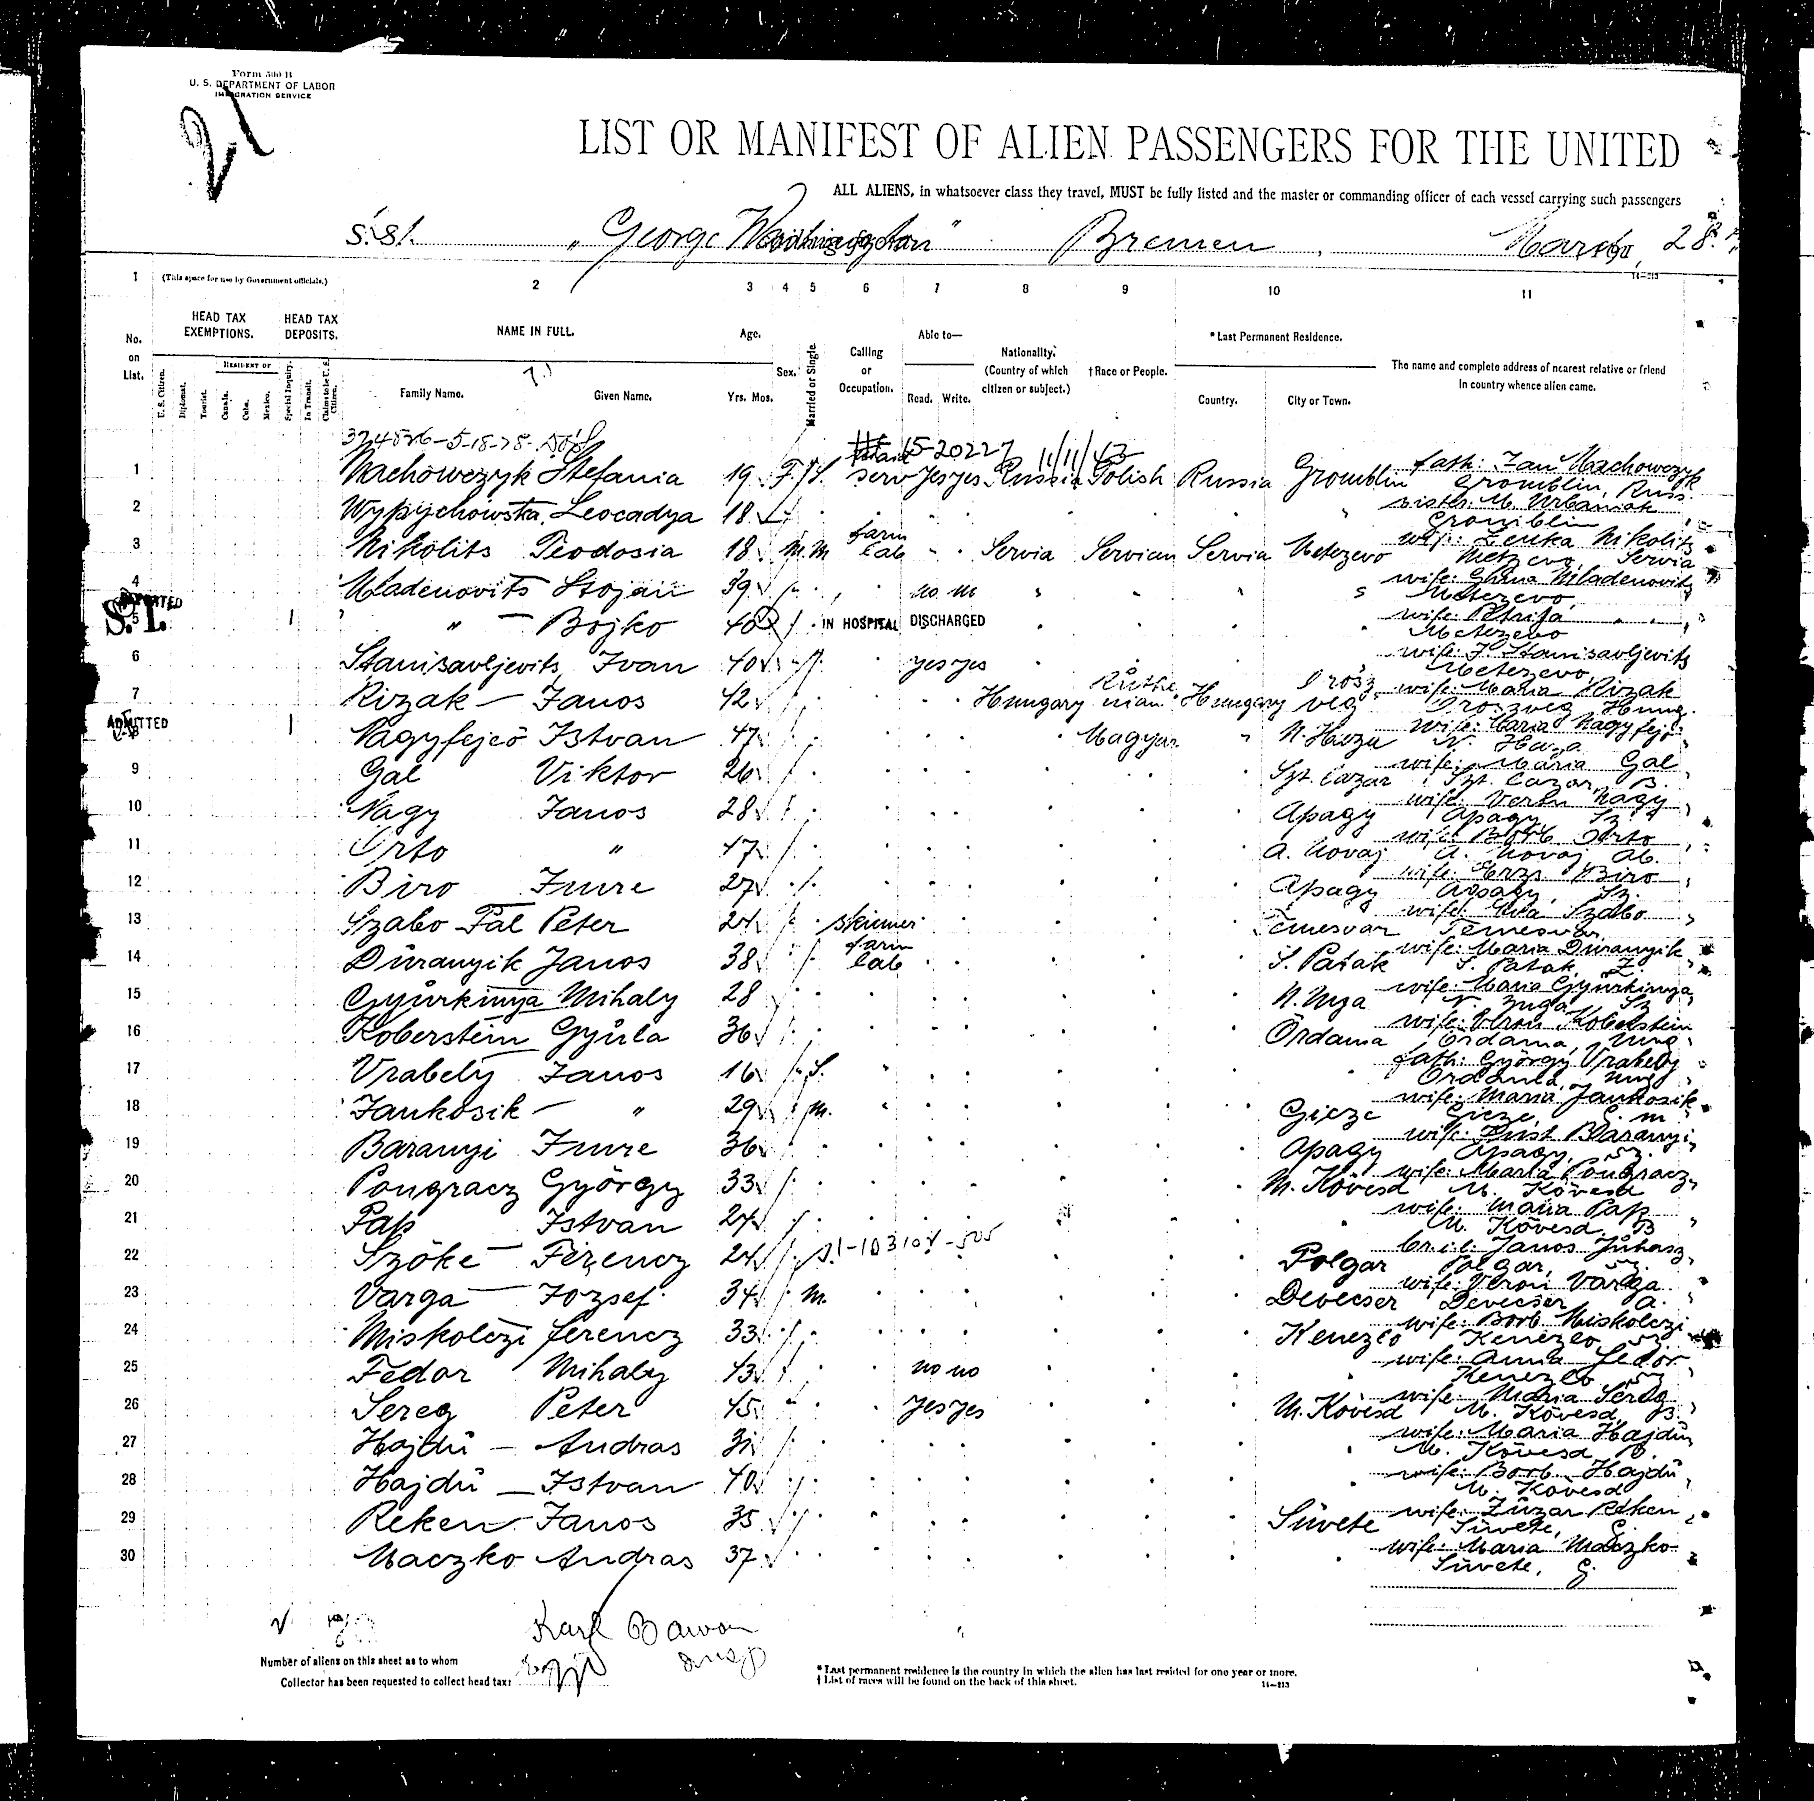 Form 500 B
U. S. DEPARTMENT OF LABOR
IMMIGRATION SERVICE
21
LIST OR MANIFEST OF ALIEN PASSENGERS FOR THE UNITED
ALL ALIENS, in whatsoever class they travel, MUST be fully listed and the master or commanding officer of each vessel carrying such passengers
S.S. "George Washington" Bremen, March 28
14—213
1 (This space for use by Government officials.) 2 3 4 5 6 7 8 9 10 11
No. on List.
HEAD TAX EXEMPTIONS.
HEAD TAX DEPOSITS.
NAME IN FULL.
Age.
Sex.
Married or Single.
Calling or Occupation.
Able to—
Nationality. (Country of which citizen or subject.)
†Race or People.
*Last Permanent Residence.
The name and complete address of nearest relative or friend in country whence alien came.
U. S. Citizen. Diplomat. Tourist. RESIDENT OF Canada. Cuba. Mexico. Special Inquiry. In Transit. Claims to be U. S. Citizen.
Family Name. Given Name. Yrs. Mos. Read. Write. Country. City or Town.
15-20227 11/11/43
1 Machowczyk Stefania 19 F. S. serv yes yes Russia Polish Russia Gromblin fath: Jan Machowczyk Gromblin, Russ.
2 Wypychowska Leocadya 18 " sister M. Urbaniak Gromblin
3 Nikolits Teodosia 18 M. M farm lab " " Servia Servian Servia Metezevo wife: Nikolits Metzevo, Servia
4 Mladenovits Stojan 39 no no wife: Mladenovits Metezevo,
DEPORTED S. I. 5 " — Bojko 40 IN HOSPITAL DISCHARGED wife: Petrija " " Metezevo
6 Stanisavljevits, Ivan 40 yes yes wife: J. Stanisavljevits Metezevo,
7 Rizak — Janos 42 Hungary Ruthenian Hungary Orosz veg wife: Maria Rizak Oroszveg Hung.
ADMITTED 8 Nagyfejeö Istvan 47 Magyar " wife: Maria Nagyfejö
9 Gal Viktor 26 Szt. Lazar wife: Maria Gal Szt. Lazar, B.
10 Nagy Janos 28 Apagy wife: Veron Nagy Apagy, Sz.
11 Orto " 47 A. Novaj wife: Borb Orto A. Novaj, Ab.
12 Biro Imre 27 Apagy wife: Erzs. Biro Apagy, Sz.
13 Szabo Pal Peter 24 skinner Temesvar wife: Eva Szabo Temesvar
14 Düranyik Janos 38 farm lab S. Patak wife: Maria Düranyik S. Patak, Z.
15 Gyürkinya Mihaly 28 wife: Maria Gyürkinya
16 Koberstein Gyüla 36 Ördama wife: Veron Koberstein Ördama, Ung
17 Vrabely Janos 16 S. fath: György Vrabely Ung
18 Jankosik — " 29 m. Gicze wife: Maria Jankosik Gicze, G. m.
19 Baranyi Imre 36 Apagy wife: Baranyi, Apagy, Sz.
20 Pongracz György 33 M. Kövesd wife: Maria Pongracz, M. Kövesd
21 Pap Istvan 24 wife: Maria Pap M. Kövesd, B
22 Szöke — Ferencz 24 S. Polgar br.i.l: Janos Juhasz, Polgar,
23 Varga — Jozsef 34 m. Devecser wife: Veron Varga Devecser A.
24 Miskolczi ferencz 33 Kenezlo wife: Borb. Miskolczi Kenezlo
25 Fedor Mihaly 43 no no wife: Anna Fedor Kenezlo
26 Sereg Peter 45 yes yes M. Kövesd wife: Maria Sereg M. Kövesd, B.
27 Hajdü — Andras 31 wife: Maria Hajdü, M. Kövesd B.
28 Hajdü — Istvan 40 wife: Borb. Hajdü M. Kövesd
29 Reken Janos 35 Süvete wife: Züzar Reken Süvete, G.
30 Maczko Andras 37 wife: Maria Maczko Süvete, G.
Karl
Number of aliens on this sheet as to whom
Collector has been requested to collect head tax:
* Last permanent residence is the country in which the alien has last resided for one year or more.
† List of races will be found on the back of this sheet. 14—213